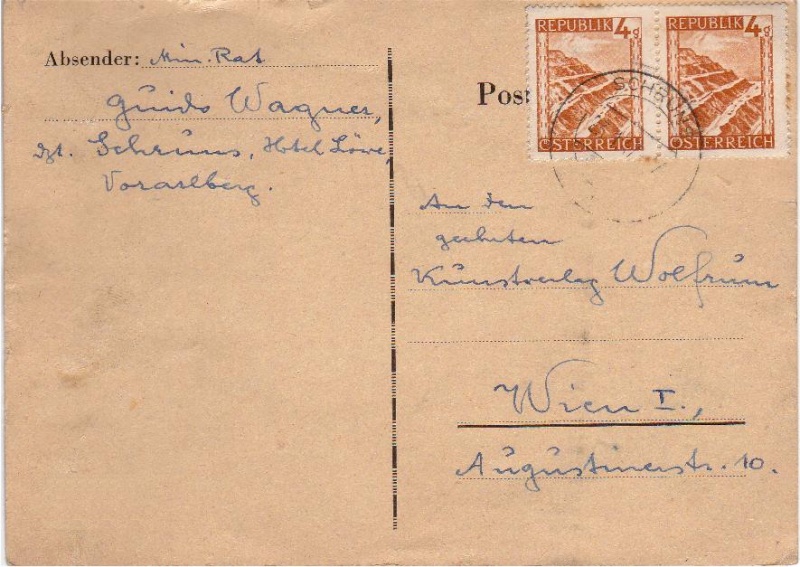 Absender: Min. Rat
Guido Wagner,
dzt. Schruns, Hotel Löwe,
Vorarlberg.
REPUBLIK 4g
ÖSTERREICH
REPUBLIK 4g
ÖSTERREICH
SCHRUNS
Post
An den
geehrten
Kunstverlag Wolfrum
Wien I.,
Augustinerstr. 10.